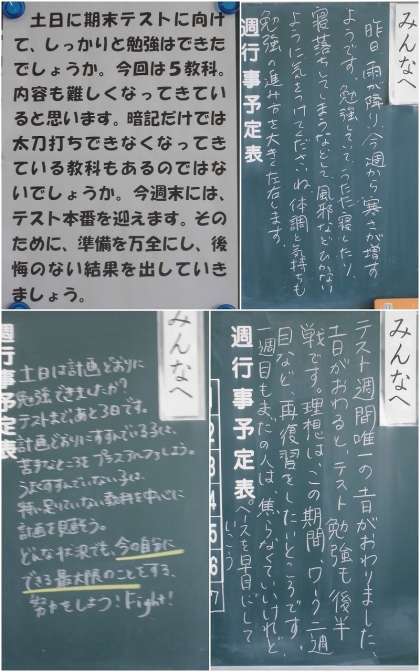 土日に期末テストに向け
て、しっかりと勉強はできた
でしょうか。今回は５教科。
内容も難しくなってきてい
ると思います。暗記だけでは
太刀打ちできなくなってき
ている教科もあるのではな
いでしょうか。今週末には、
テスト本番を迎えます。その
ために、準備を万全にし、後
悔のない結果を出していき
ましょう。
みんなへ
昨日、雨が降り、今週から寒さが増す
ようです。勉強していて、うたた寝したり、
寝落ちしてしまうなどして、風邪などひかない
ように気をつけてくださいね。体調と気持ちも
勉強の進み方を大きく左右します。
週行事予定表
みんなへ
土日は計画どおりに
勉強できましたか？
テストまで、あと3日です。
計画どおりにすすんでいる子は、
苦手なところをプラスアルファしよう。
うまくすすんでいない子は、
特に足りていない教科を中心に
計画を見直そう。
どんな状況でも、今の自分に
できる最大限のことをする、
努力をしよう！Fight！
週行事予定表
みんなへ
テスト週間唯一の土日がおわりました。
土日がおわると、テスト勉強も後半
戦です。理想は、この期間、ワーク二週
目など、再復習をしたいところです。
一週目もまだの人は、焦らなくていいけれど、
ペースを早目にして
いこう
週行事予定表
1
2
3
4
5
6
7